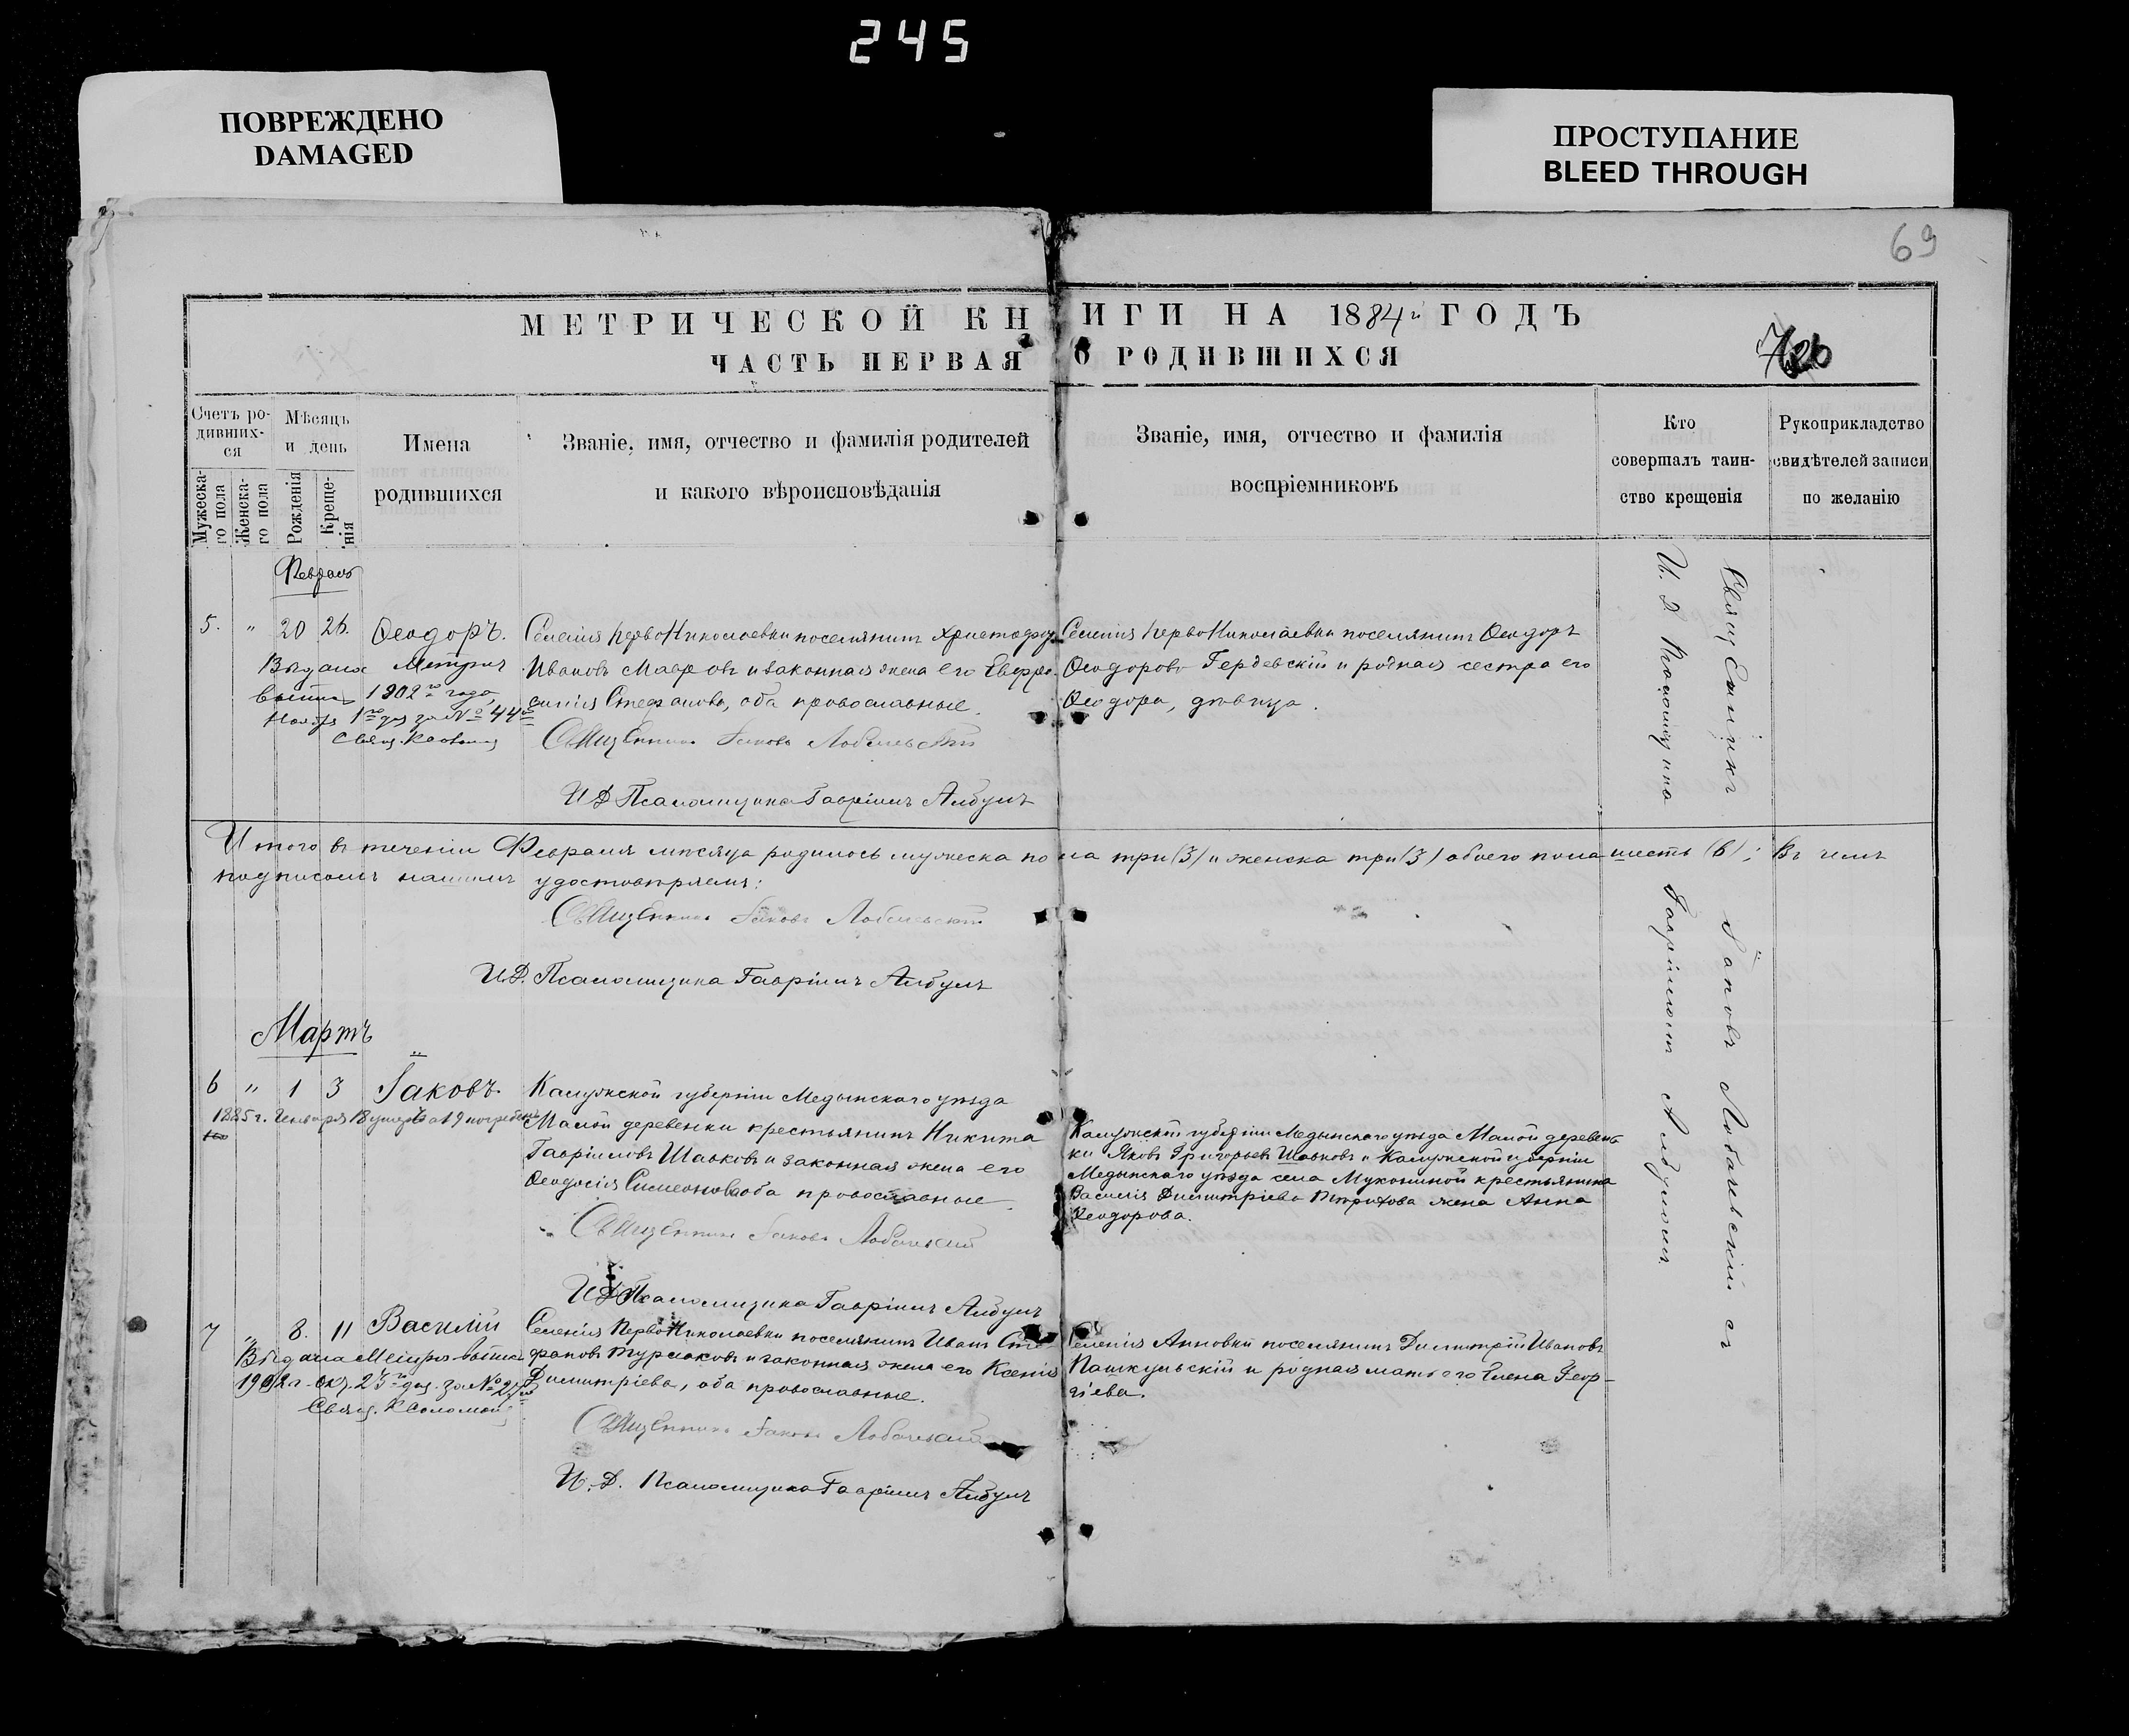 245
ПОВРЕЖДЕНО
DAMAGED
ПРОСТУПАНИЕ
BLEED THROUGH
69
МЕТРИЧЕСКОЙ КНИГИ НА 1884й ГОДЪ
ЧАСТЬ ПЕРВАЯ О РОДИВШИХСЯ
Счетъ ро-
дивших-
ся
Мужеска-
го пола
Женска-
го пола
Мѣсяцъ
и день
Рожденія
Креще-
нія
Имена
родившихся
Званіе, имя, отчество и фамилія родителей
и какого вѣроисповѣданія
Званіе, имя, отчество и фамилія
воспріемниковъ
Кто
совершалъ таин-
ство крещенія
Рукоприкладство
свидѣтелей записи
по желанію
Февраль
5. " 20 26. Ѳеодоръ.
Выдана Метрич
выпись 1902го года
Ноября 1го дня за № 44
Селенія ПервоНиколаевки поселянинъ Христофоръ
Ивановъ Мавровъ и законная жена его Евфро-
синія Стефанова, оба православные.
Священникъ Іаковъ Лобачевскій
И Д Псаломщика Гавріилъ Албулъ
Селенія ПервоНиколаевки поселянинъ Ѳеодоръ
Ѳеодоровъ Гердевскій и родная сестра его
Ѳеодора, дѣвица.
Итого въ теченіи Февраля мѣсяца родилось мужеска пола три (3) и женска три (3) обоего пола шесть (6); Въ чемъ
подписомъ нашимъ удостовѣряемъ:
Священникъ Іаковъ Лобачевскій
И.Д. Псаломщика Гавріилъ Албулъ
Мартъ
6 " 1 3 Іаковъ.
1885 г. Января 18 умеръ а 19 погребенъ
Калужской губерніи Медынскаго уѣзда
Малой деревенки крестьянинъ Никита
Гавріиловъ Шавковъ и законная жена его
Ѳеодосія Симеонова оба православные.
Священникъ Іаковъ Лобачевскій
И Д Псаломщика Гавріилъ Албулъ
Калужской губерніи Медынскаго уѣзда Малой деревен-
ки Яковъ Григорьевъ Шавковъ и Калужской губерніи
Медынскаго уѣзда села Мукониной крестьянина
Василія Димитріева жена Анна
Ѳеодорова.
7 " 8. 11 Василій
Выдана Метр. выпись
1902 г. Окт. 25го дня за №
Свящ.
Селенія ПервоНиколаевки поселянинъ Иванъ Сте-
фановъ Турлаковъ и законная жена его Ксенія
Димитріева, оба православные.
Священникъ Іаковъ Лобачевскій
И. Д. Псаломщика Гавріилъ Албулъ
Селенія Анновки поселянинъ Димитрій Ивановъ
Пашкульскій и родная мать его Елена Геор-
гіева.
Священникъ Іаковъ Лобачевскій съ
И. Д. Псаломщика Гавріиломъ Албуломъ